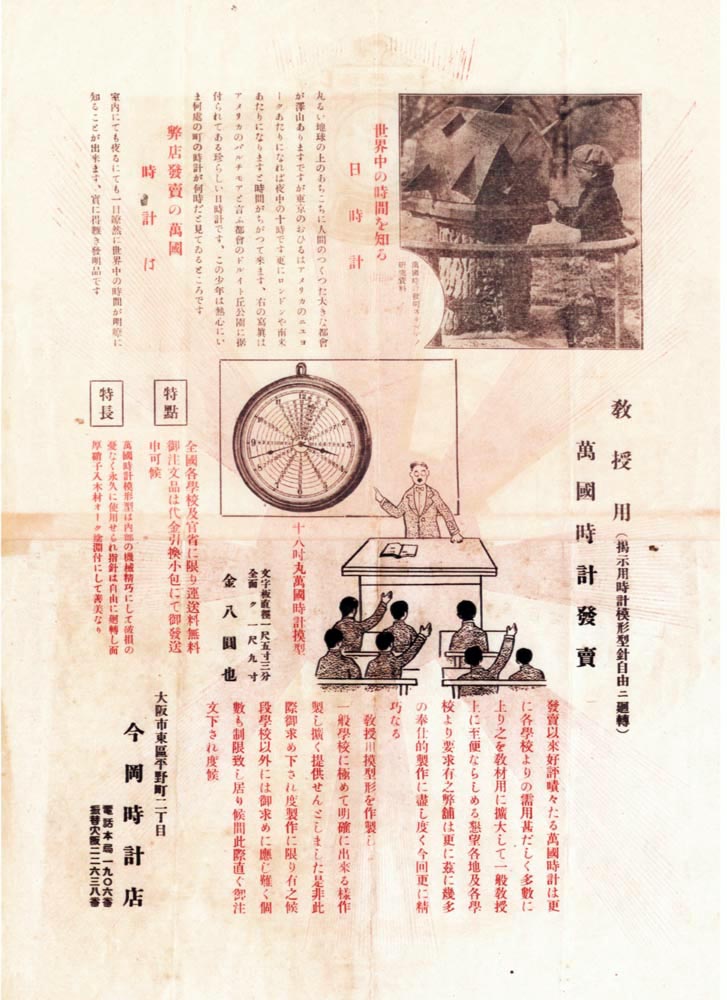 世界中の時間を知る
日時計
丸るい地球の上のあちこちに人間のつくつた大きな都會
が澤山ありますですが東京のおひるはアメリカのニユヨ
ークあたりになれば夜中の十時です更にロンドンや南米
あたりになりますと時間がちがつて来ます、右の寫眞は
アメリカのバルチモアと言ふ都會のドルイト丘公園に据
付られてある珍らしい日時計です、この少年は熱心にい
ま何處の町の時計が何時だと見てゐるところです
弊店發賣の萬國
時計は
室内にても夜るにても一目瞭然に世界中の時間が明瞭に
知ることが出来ます、實に得難き發明品です
萬國時計發明
研究資料
教授用(揭示用時計模形型針自由ニ廻轉)
萬國時計發賣
發賣以来好評嘖々たる萬國時計は更
に各學校よりの需用甚だしく多數に
上り之を教材用に擴大して一般教授
上に至便ならしめる懇望各地及各學
校より要求有之弊舖は更に玆に幾多
の奉仕的製作に盡し度く今回更に精
巧なる
教授用模型形を作製し
一般學校に極めて明確に出来る樣作
製し擴く提供せんとしました是非此
際御求め下され度製作に限り有之候
段學校以外には御求めに應じ難く個
數も制限致し居り候間此際直ぐ御注
文下され度候
十八吋丸萬國時計模型
文字板直徑一尺五寸三分
全面〃一尺九寸
金八圓也
特點
全國各學校及官省に限り運送料無料
御注文品は代金引換小包にて御發送
申可候
特長
萬國時計模形型は内部の機械精巧にして破損の
憂なく永久に使用せられ指針は自由に廻轉し面
厚硝子入木材オーク塗淵付にして善美なり
大阪市東區平野町二丁目
今岡時計店
電話本局一九〇六番
振替大阪二二六三八番